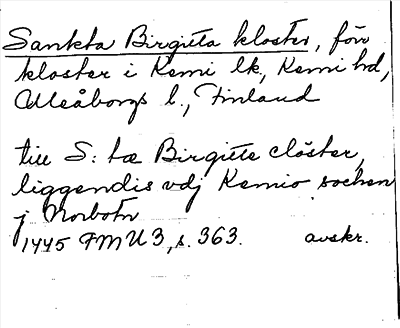 Sankta Birgitta kloster, förv
kloster i Kemi lk, Kemi hd,
Uleåborgs l., Finland
till S:tæ Birgitte clöster,
liggendis vdj Kemio sochen
j Norbotn
1445 FMU 3, s. 363. avskr.